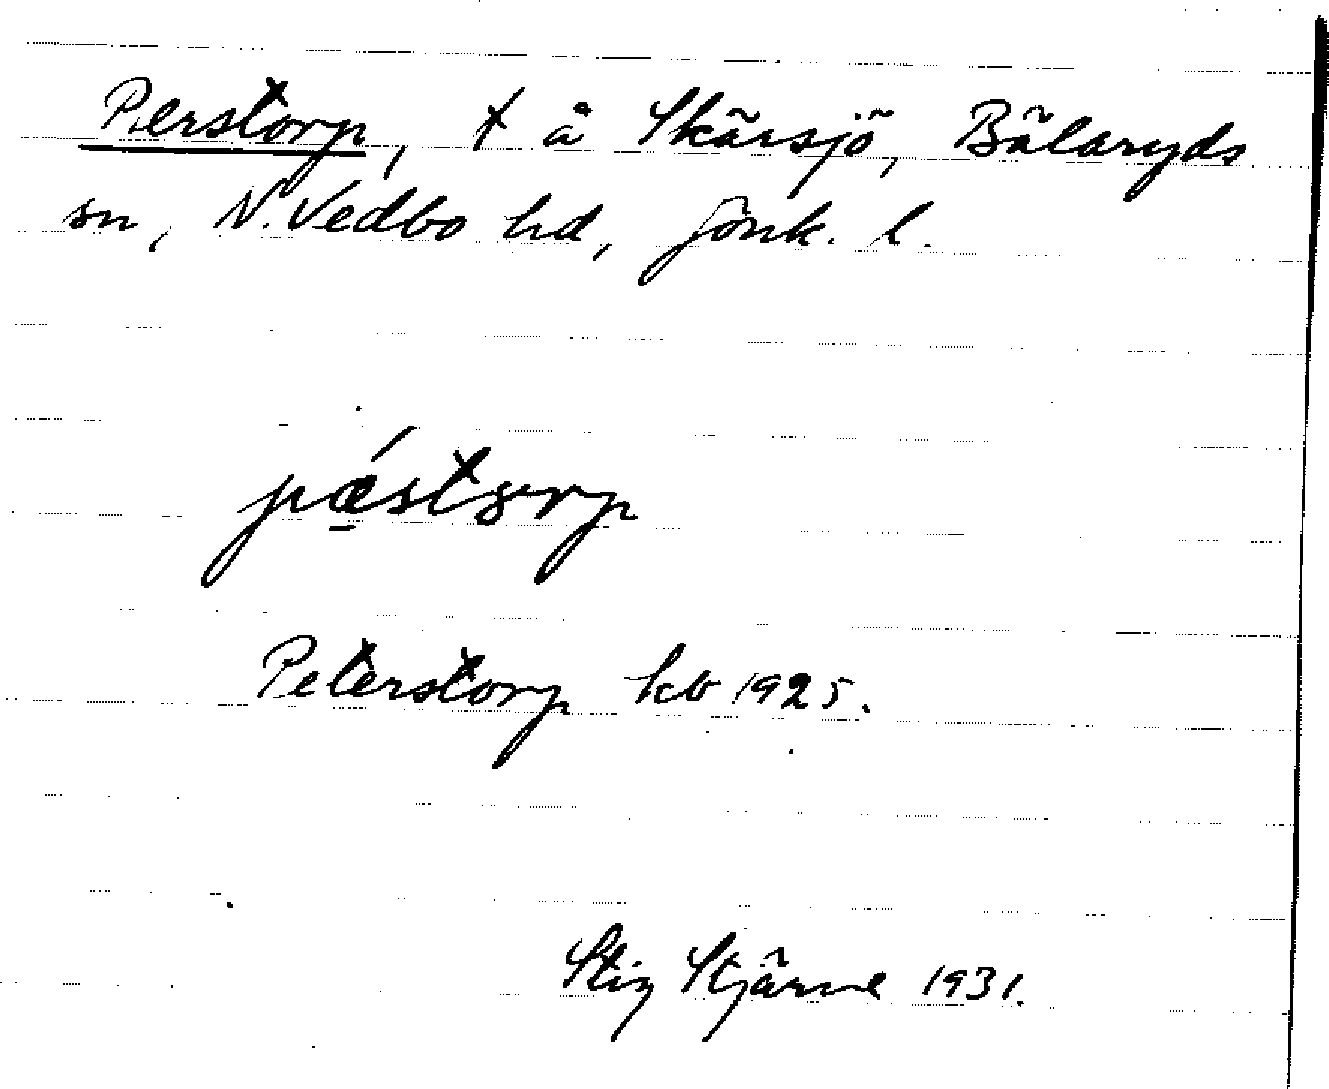 Perstorp, t å Skärsjö, Bälaryds
sn, N. Vedbo hd, Jönk. l.
pǽstorp
Peterstorp kb 1925.
Stig Stjärne 1931.